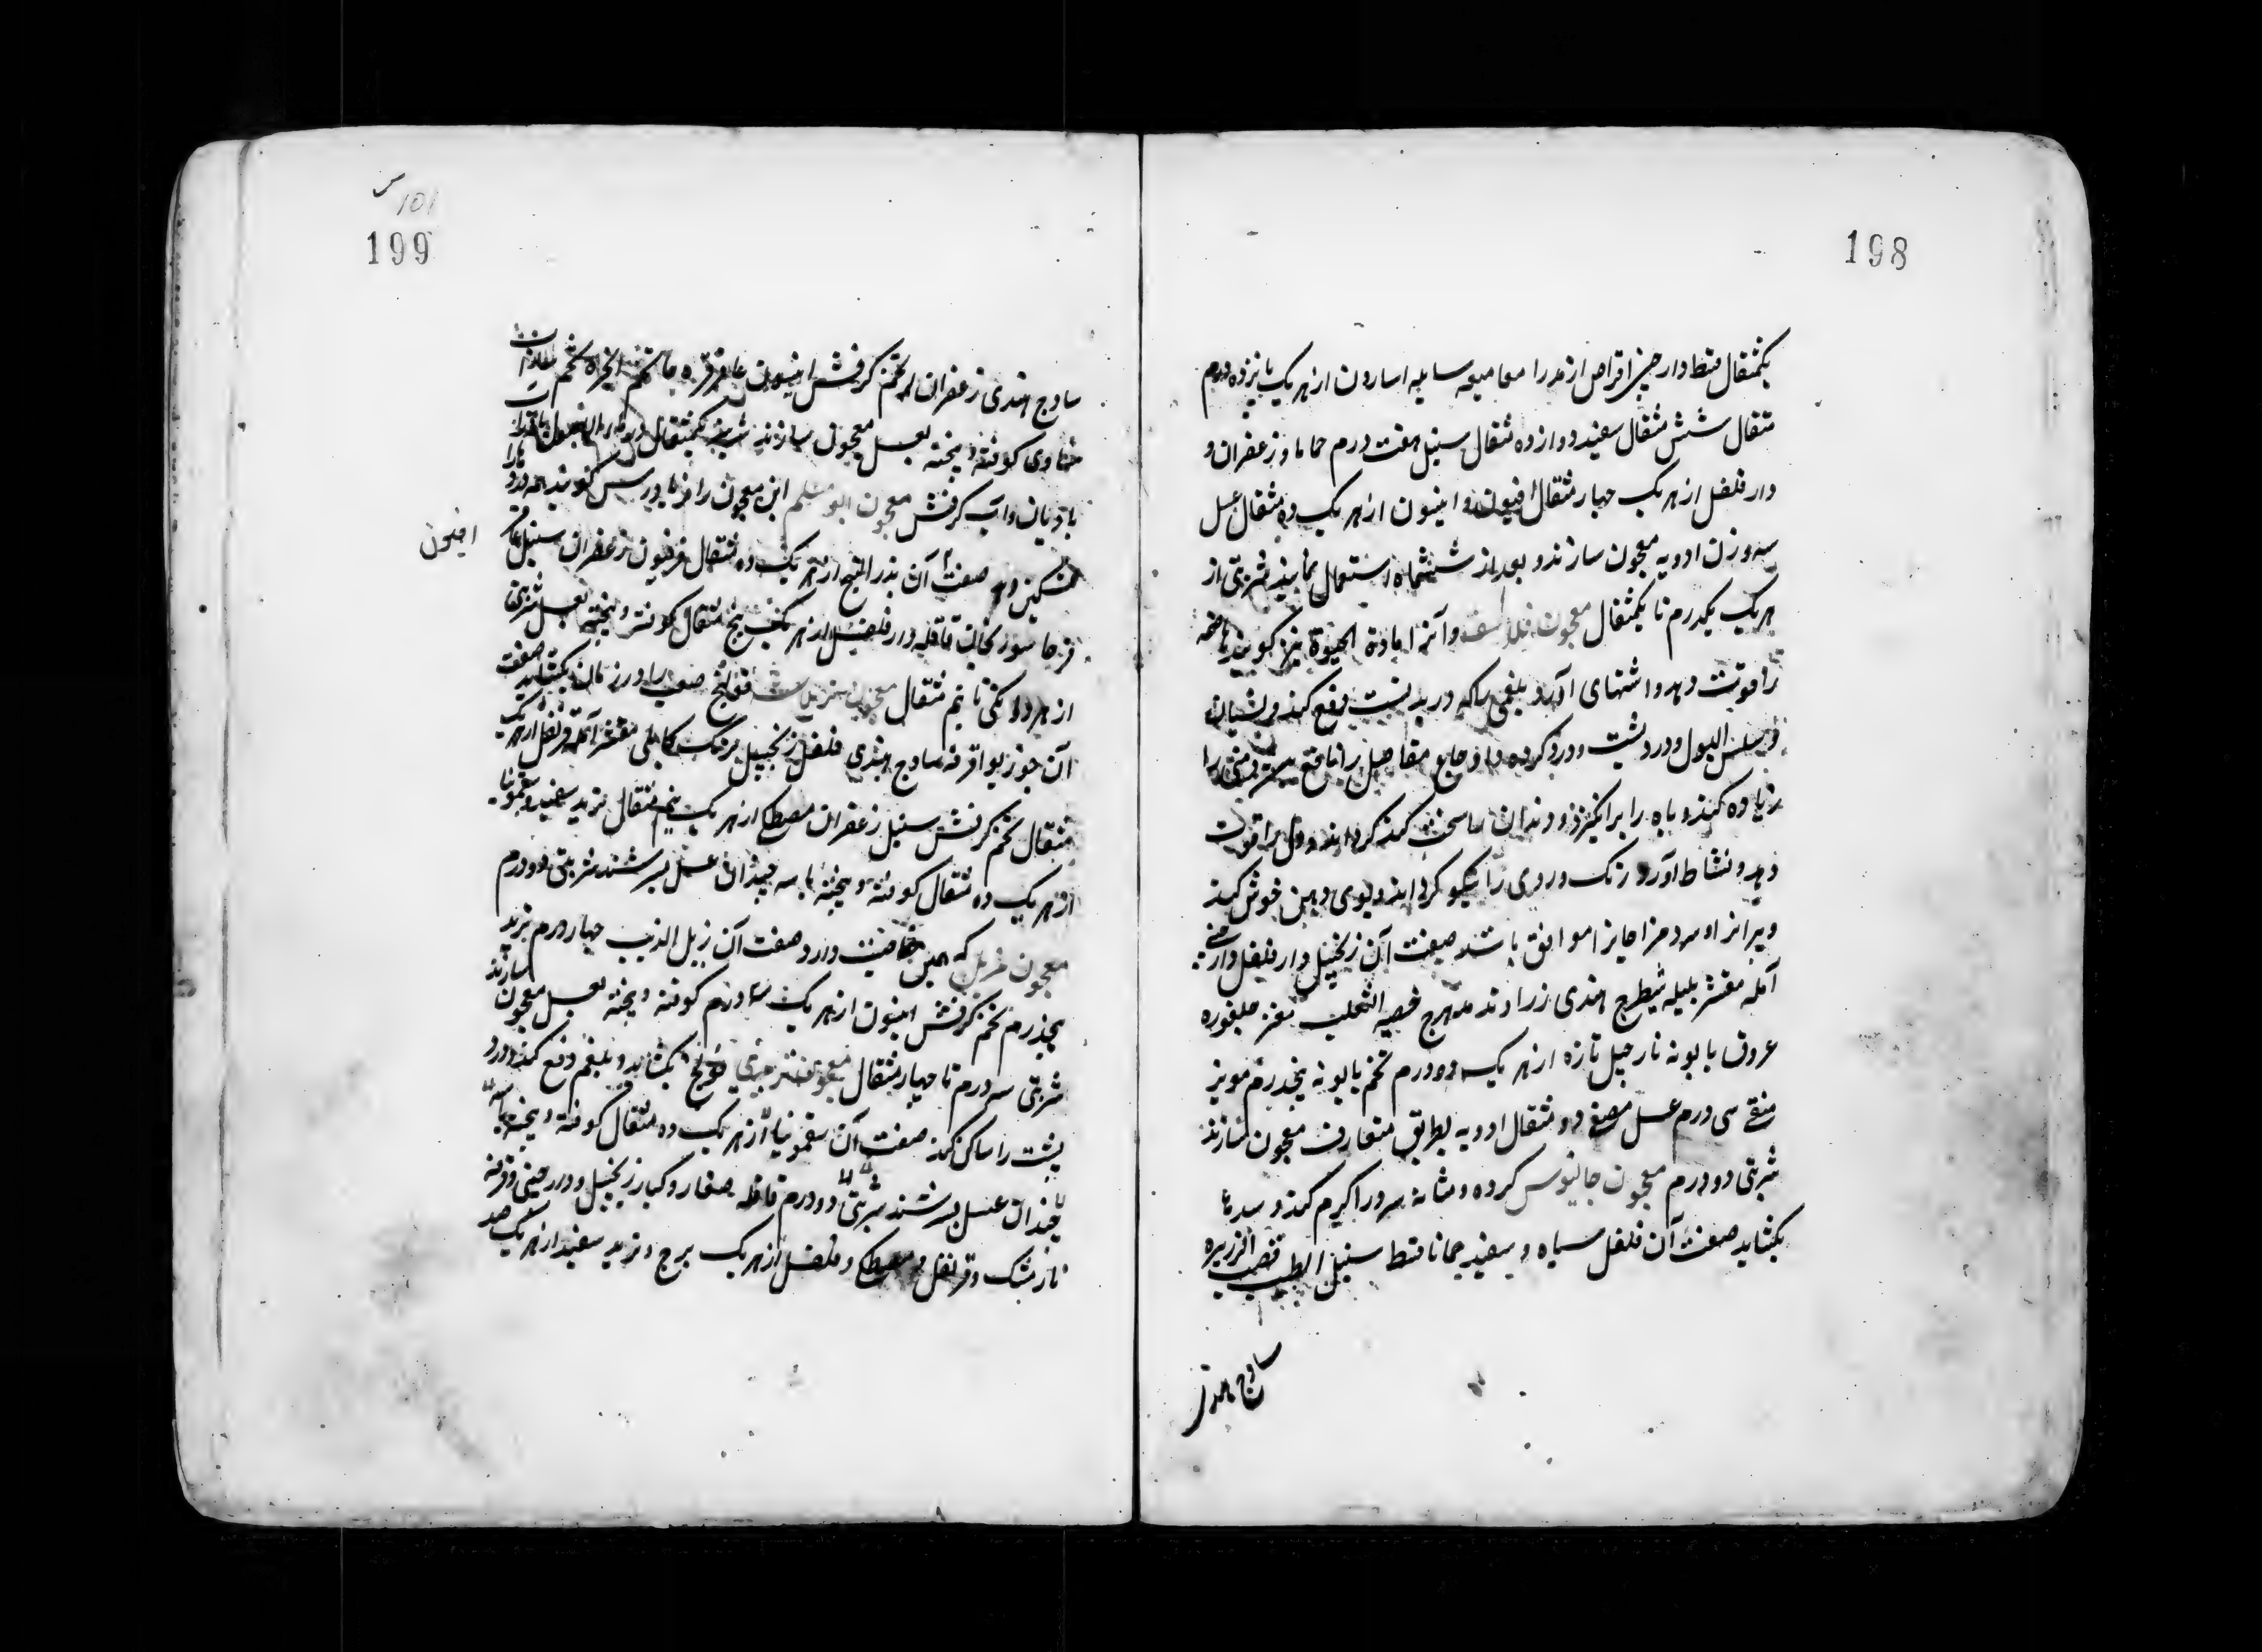 198
یکمثقال قسط دارچینی اقراص اندرا معا میعه سایله اسارون از هر یک پانزده درم
مثقال شش مثقال سفید دوازده مثقال سنبل هفت درم حماما و زعفران و
دار فلفل از هر یک چهار مثقال افیون و انیسون از هر یک ده مثقال عسل
سه وزن ادویه معجون سازند و بعد از ششماه استعمال نمایند شربتی از
هر یک یکدرم تا یکمثقال معجون فلاسفه و آنرا مادة الحیوة نیز گویند هاضمه
را قوت دهد و اشتهای آرد و بلغمی را که در بدنست دفع کند و نسیان
و سلس البول و درد پشت و درد کرده و اوجاع مفاصل را نافع است و منی را
زیاده کند و باه را برانگیزد و دندان را سخت کند گرداند و دل را قوت
دهد و نشاط آورد و رنک و روی را نیکو گرداند و بوی دهن خوش کند
و پیرانرا و سرد مزاجانرا موافق باشد صفت آن زنجبیل دار فلفل دارچینی
آمله مقشر بلیله شیطرج هندی زراوند مدحرج خصیه الثعلب مغز جلغوزه
عروق بابونه نارجیل تازه از هر یک ده درم تخم بابونه پنجدرم مویز
منقی سی درم عسل مصفی دو مثقال ادویه بطریق متعارف معجون سازند
شربتی دو درم معجون جالینوس کرده و مثانه سرد را گرم کند و سدها
بکشاید صفت آن فلفل سیاه و سفید حماما قسط سنبل الطیب قصب الزریره
ساذج هندی
101
199
ساذج هندی زعفران تخم کرفش انیسون عاقرقرحا تخم انجره تخم
متساوی کوفته و پخته بعسل معجون سازند شربتی یکمثقال
بادیان و آب کرفش معجون ابومسلم این معجون را فریادرس گویند همه دردها را
تسکین دهد صفت آن بذر البنج از هر یک ده مثقال فرفیون زعفران سنبل عاقر
افیون
قرحا سورنجان قاقله دار فلفل از هر یک پنج مثقال کوفته و پخته بعسل شربتی
از هر دانکی تا نیم مثقال معجون قولنج صعب را در زمان بکشاید صفت
آن جوز بوا قرفه ساذج هندی فلفل زنجبیل برنک کابلی مقشر آمله قرنفل از هر یک
مثقال تخم کرفش سنبل زعفران مصطکی از هر یک نیم مثقال تربد سفید و سقمونیا
از هر یک ده مثقال کوفته و پخته با سه چندان عسل بسرشند شربتی دو درم
معجون که همین خاصیت دارد صفت آن زبل الذیب چهار درم تربد
پنجدرم تخم کرفش انیسون از هر یک درم کوفته و پخته بعسل معجون سازند
شربتی سه درم تا چهار مثقال معجون قولنج بکشاید و بلغم دفع کند و درد
پشت را ساکن کند صفت آن سقمونیا از هر یک ده مثقال کوفته و پخته با سه
چندان عسل بسرشند شربتی دو درم قاقله صغار و کبار زنجبیل و دارچینی و قرفه
نارمشک و قرنفل و مصطکی و فلفل از هر یک و تربد سفید از هر یک صد